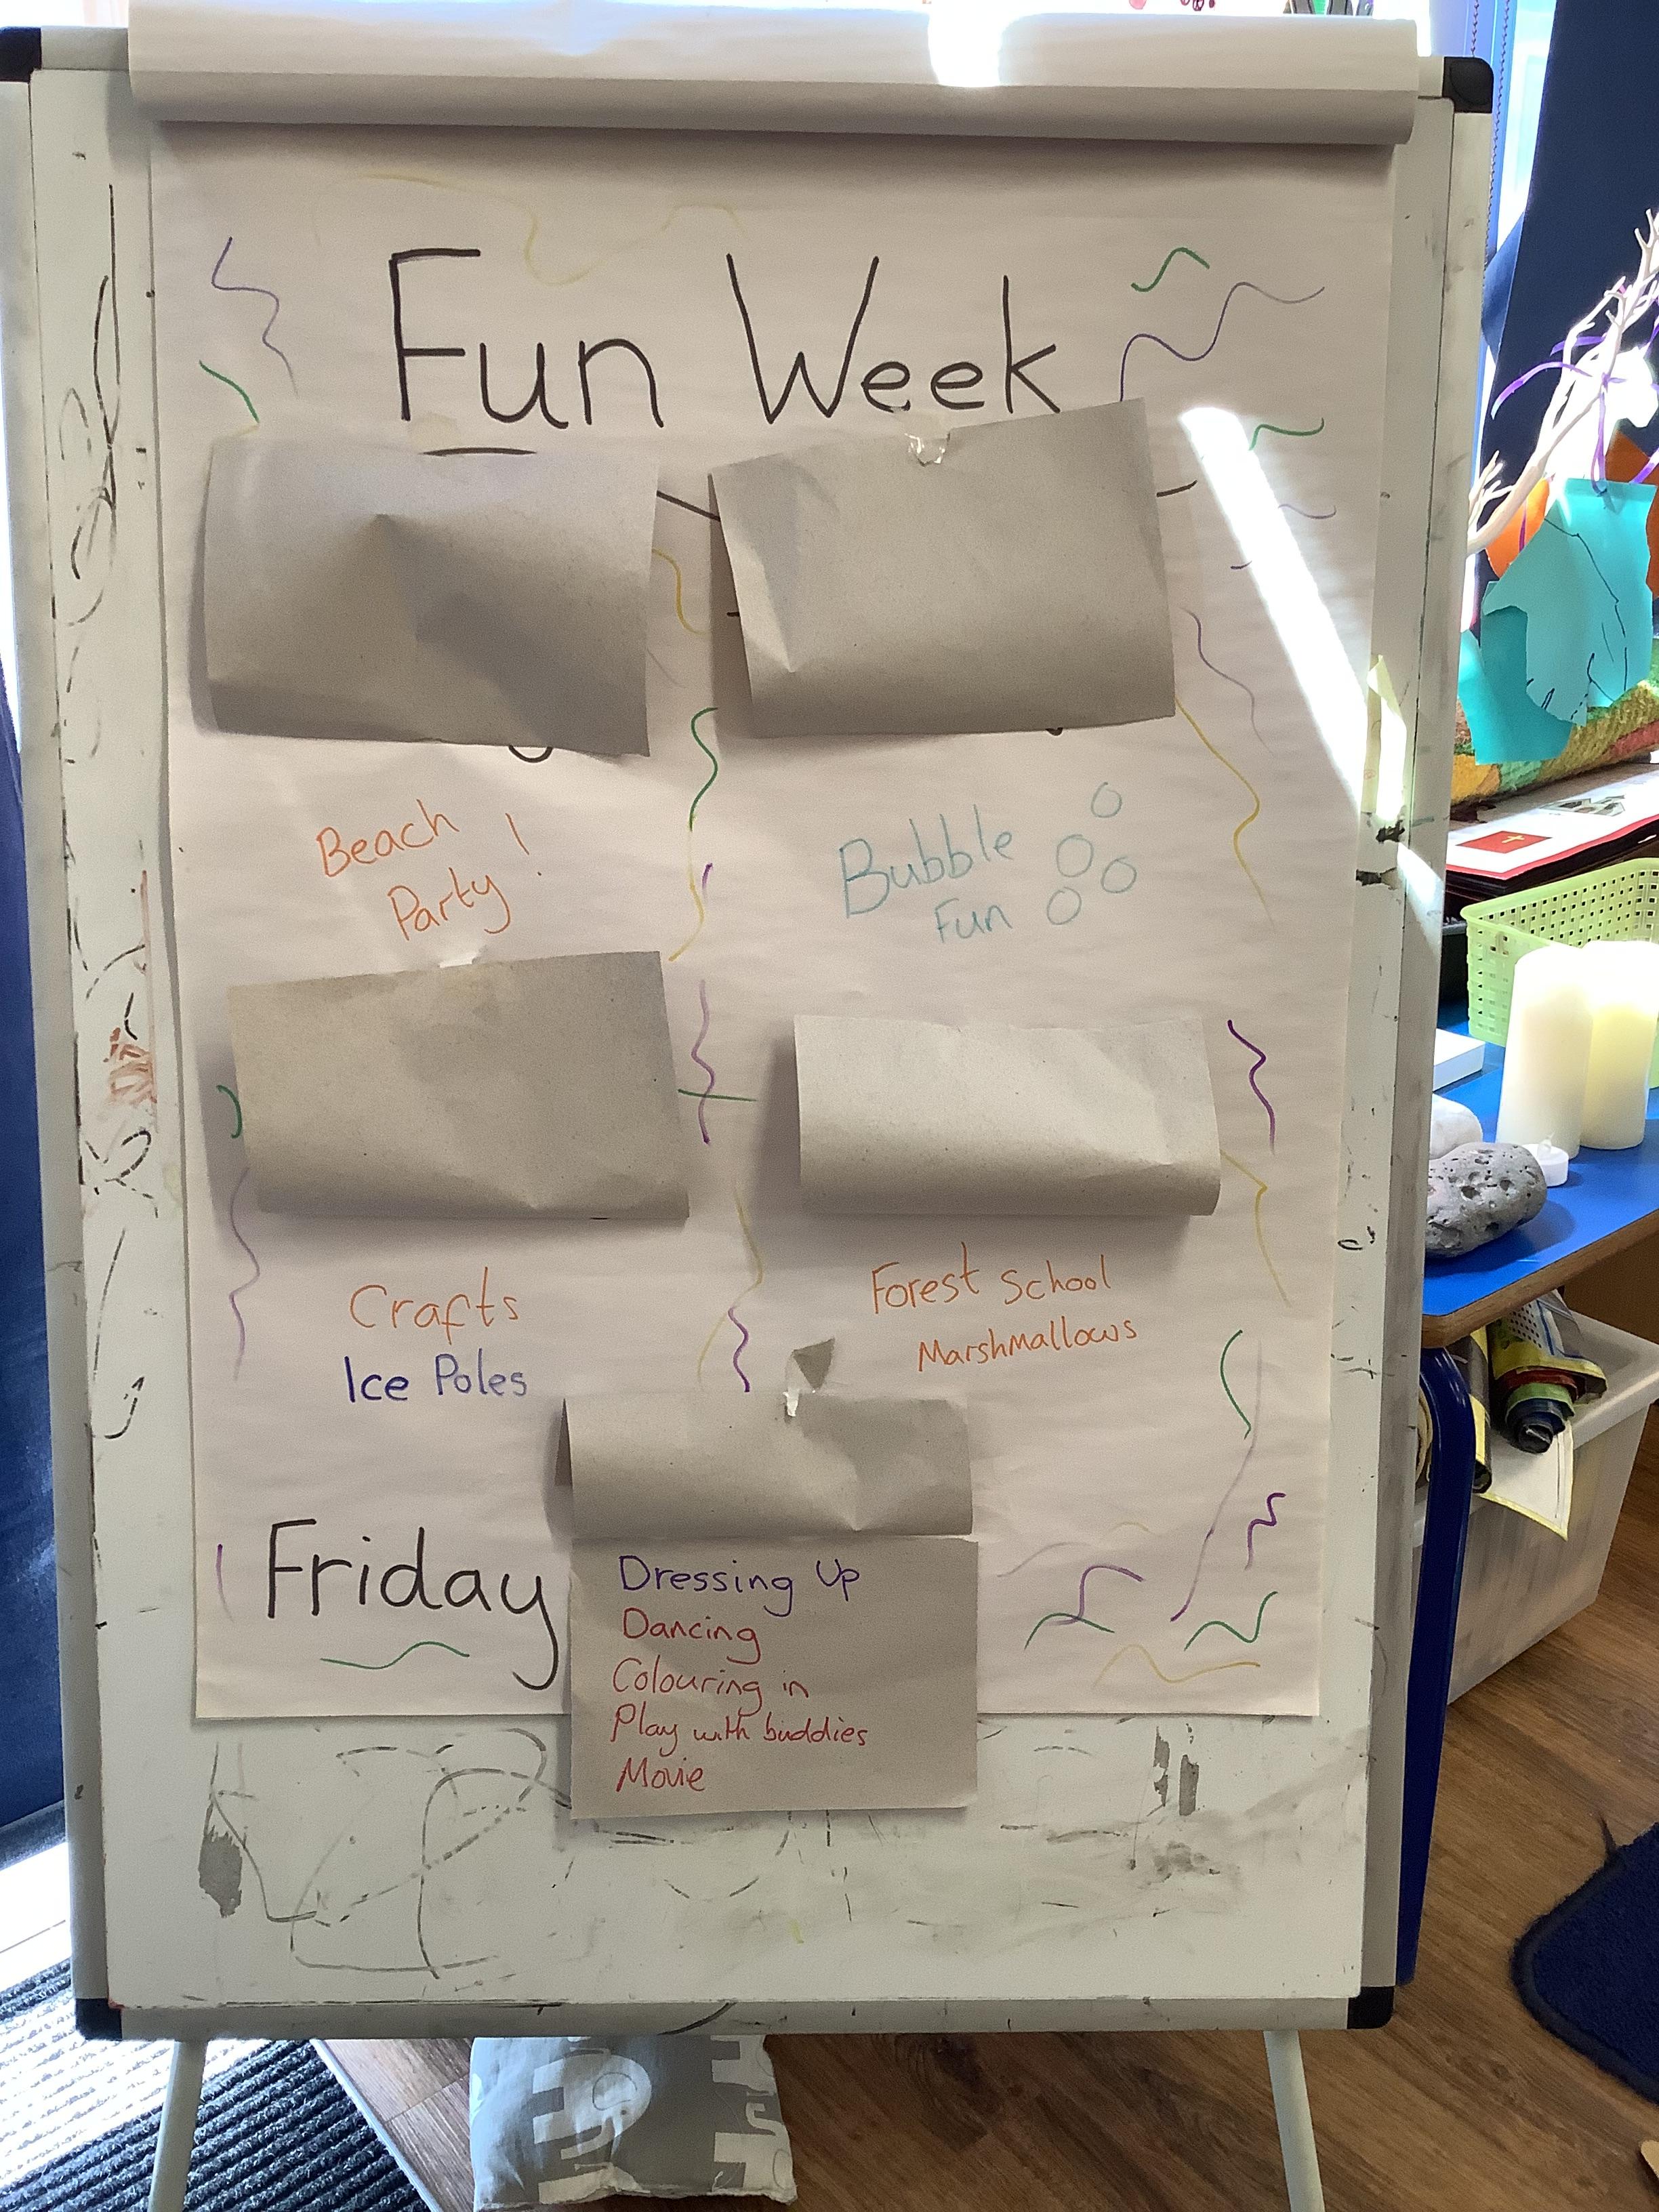 Fun Week
Beach
Party!
Bubble
Fun
Crafts
Ice Poles
Forest School
Marshmallows
Friday
Dressing Up
Dancing
Colouring in
Play with buddies
Movie